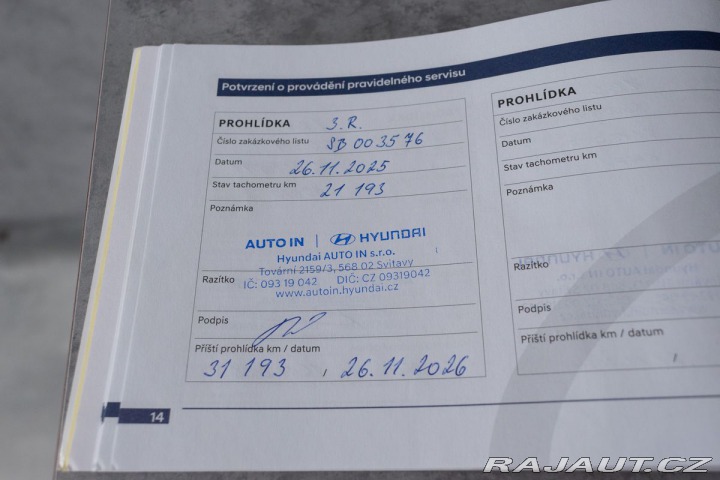 Potvrzení o provádění pravidelného servisu
PROHLÍDKA 3.R.
Číslo zakázkového listu SB 003576
Datum 26.11.2025
Stav tachometru km 21 193
Poznámka
AUTO IN | HYUNDAI
Hyundai AUTO IN s.r.o.
Tovární 2159/3, 568 02 Svitavy
Razítko
IČ: 093 19 042 DIČ: CZ 09319042
www.autoin.hyundai.cz
Podpis
Příští prohlídka km / datum
31 193 , 26.11.2026
14
PROHLÍDKA
Číslo zakázkového listu
Datum
Stav tachometru km
Poznámka
Razítko
Podpis
Příští prohlídka km / datum
/
RAJAUT.CZ